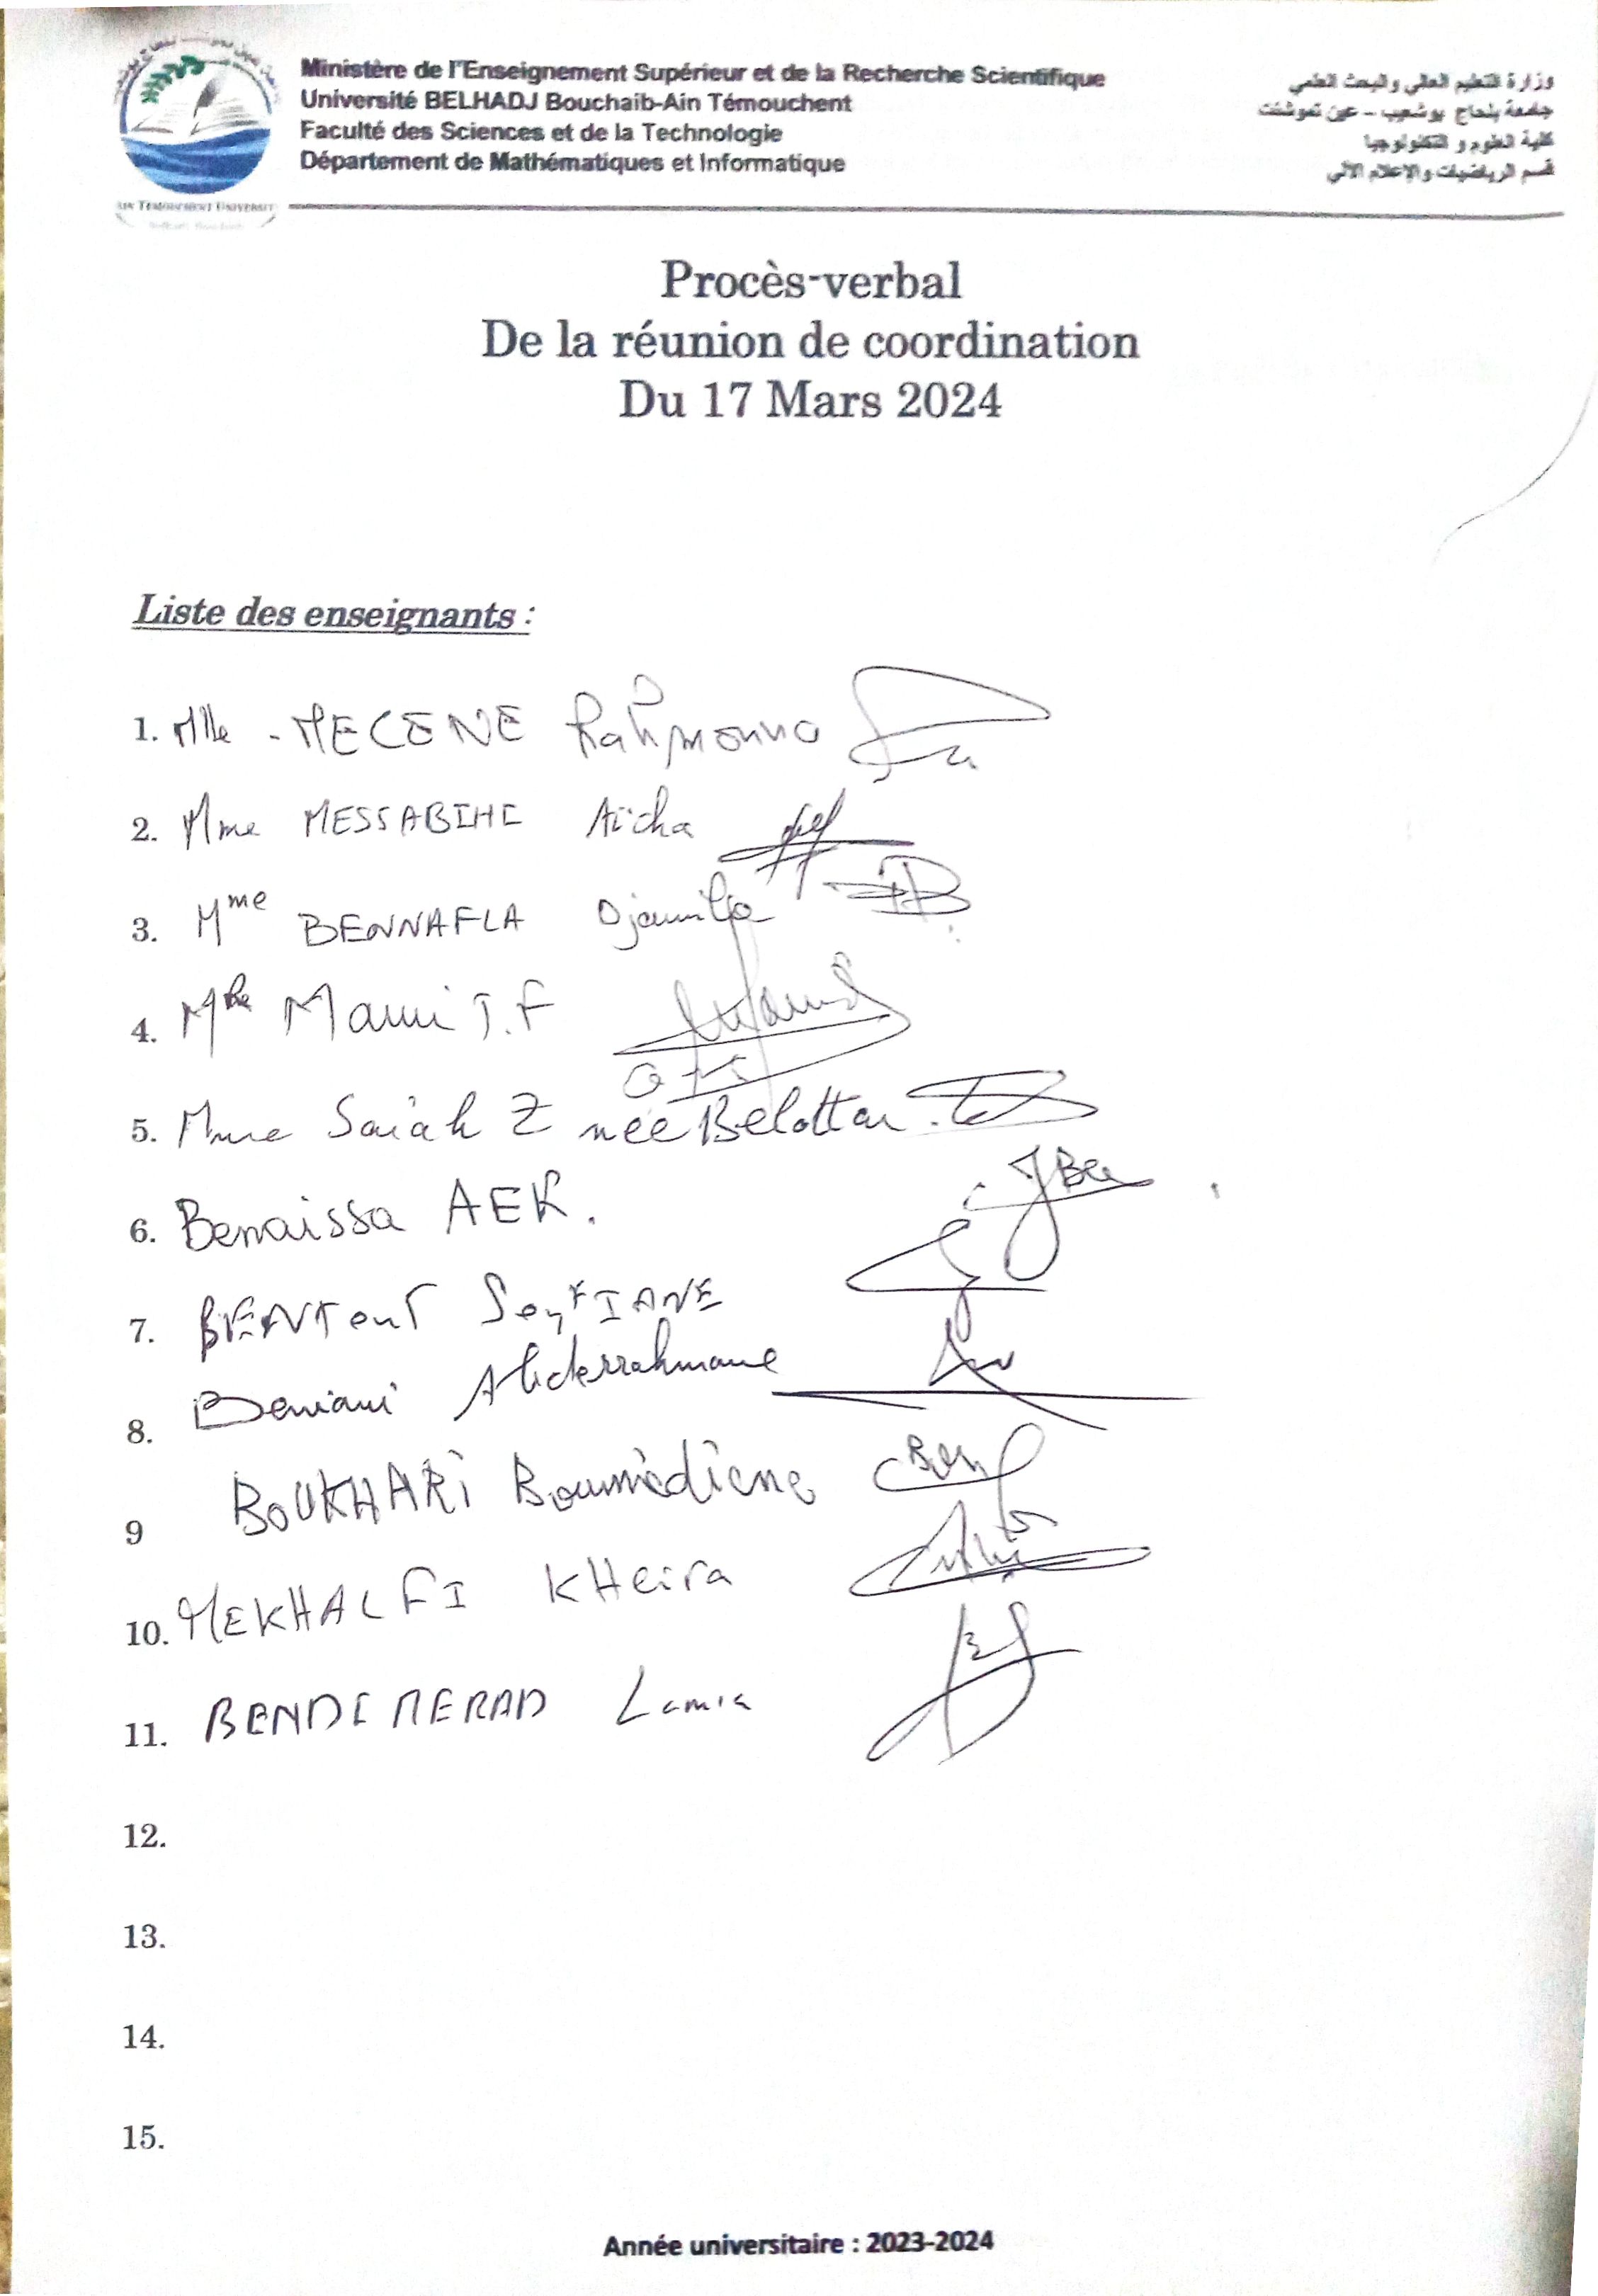 Ministère de l'Enseignement Supérieur et de la Recherche Scientifique
Université BELHADJ Bouchaib-Ain Témouchent
Faculté des Sciences et de la Technologie
Département de Mathématiques et Informatique
وزارة التعليم العالي والبحث العلمي
جامعة بلحاج بوشعيب - عين تموشنت
كلية العلوم و التكنولوجيا
قسم الرياضيات والإعلام الآلي
AIN TEMOUCHENT UNIVERSITY
Procès-verbal
De la réunion de coordination
Du 17 Mars 2024
Liste des enseignants :
1. Mlle - MECENE Rahmouna
2. Mme MESSABIHI Aïcha
3. Mme BENNAFLA Djamila
4. Mlle Mami T.F
5. Mme Saiah Z née Belottar
6. Benaissa AEK.
7. BENTOUT SoufIANE
8. Beniani Abderrahmane
9 BOUKHARI Boumèdiene
10. MEKHALFI KHeira
11. BENDIMERAD Lamia
12.
13.
14.
15.
Année universitaire : 2023-2024